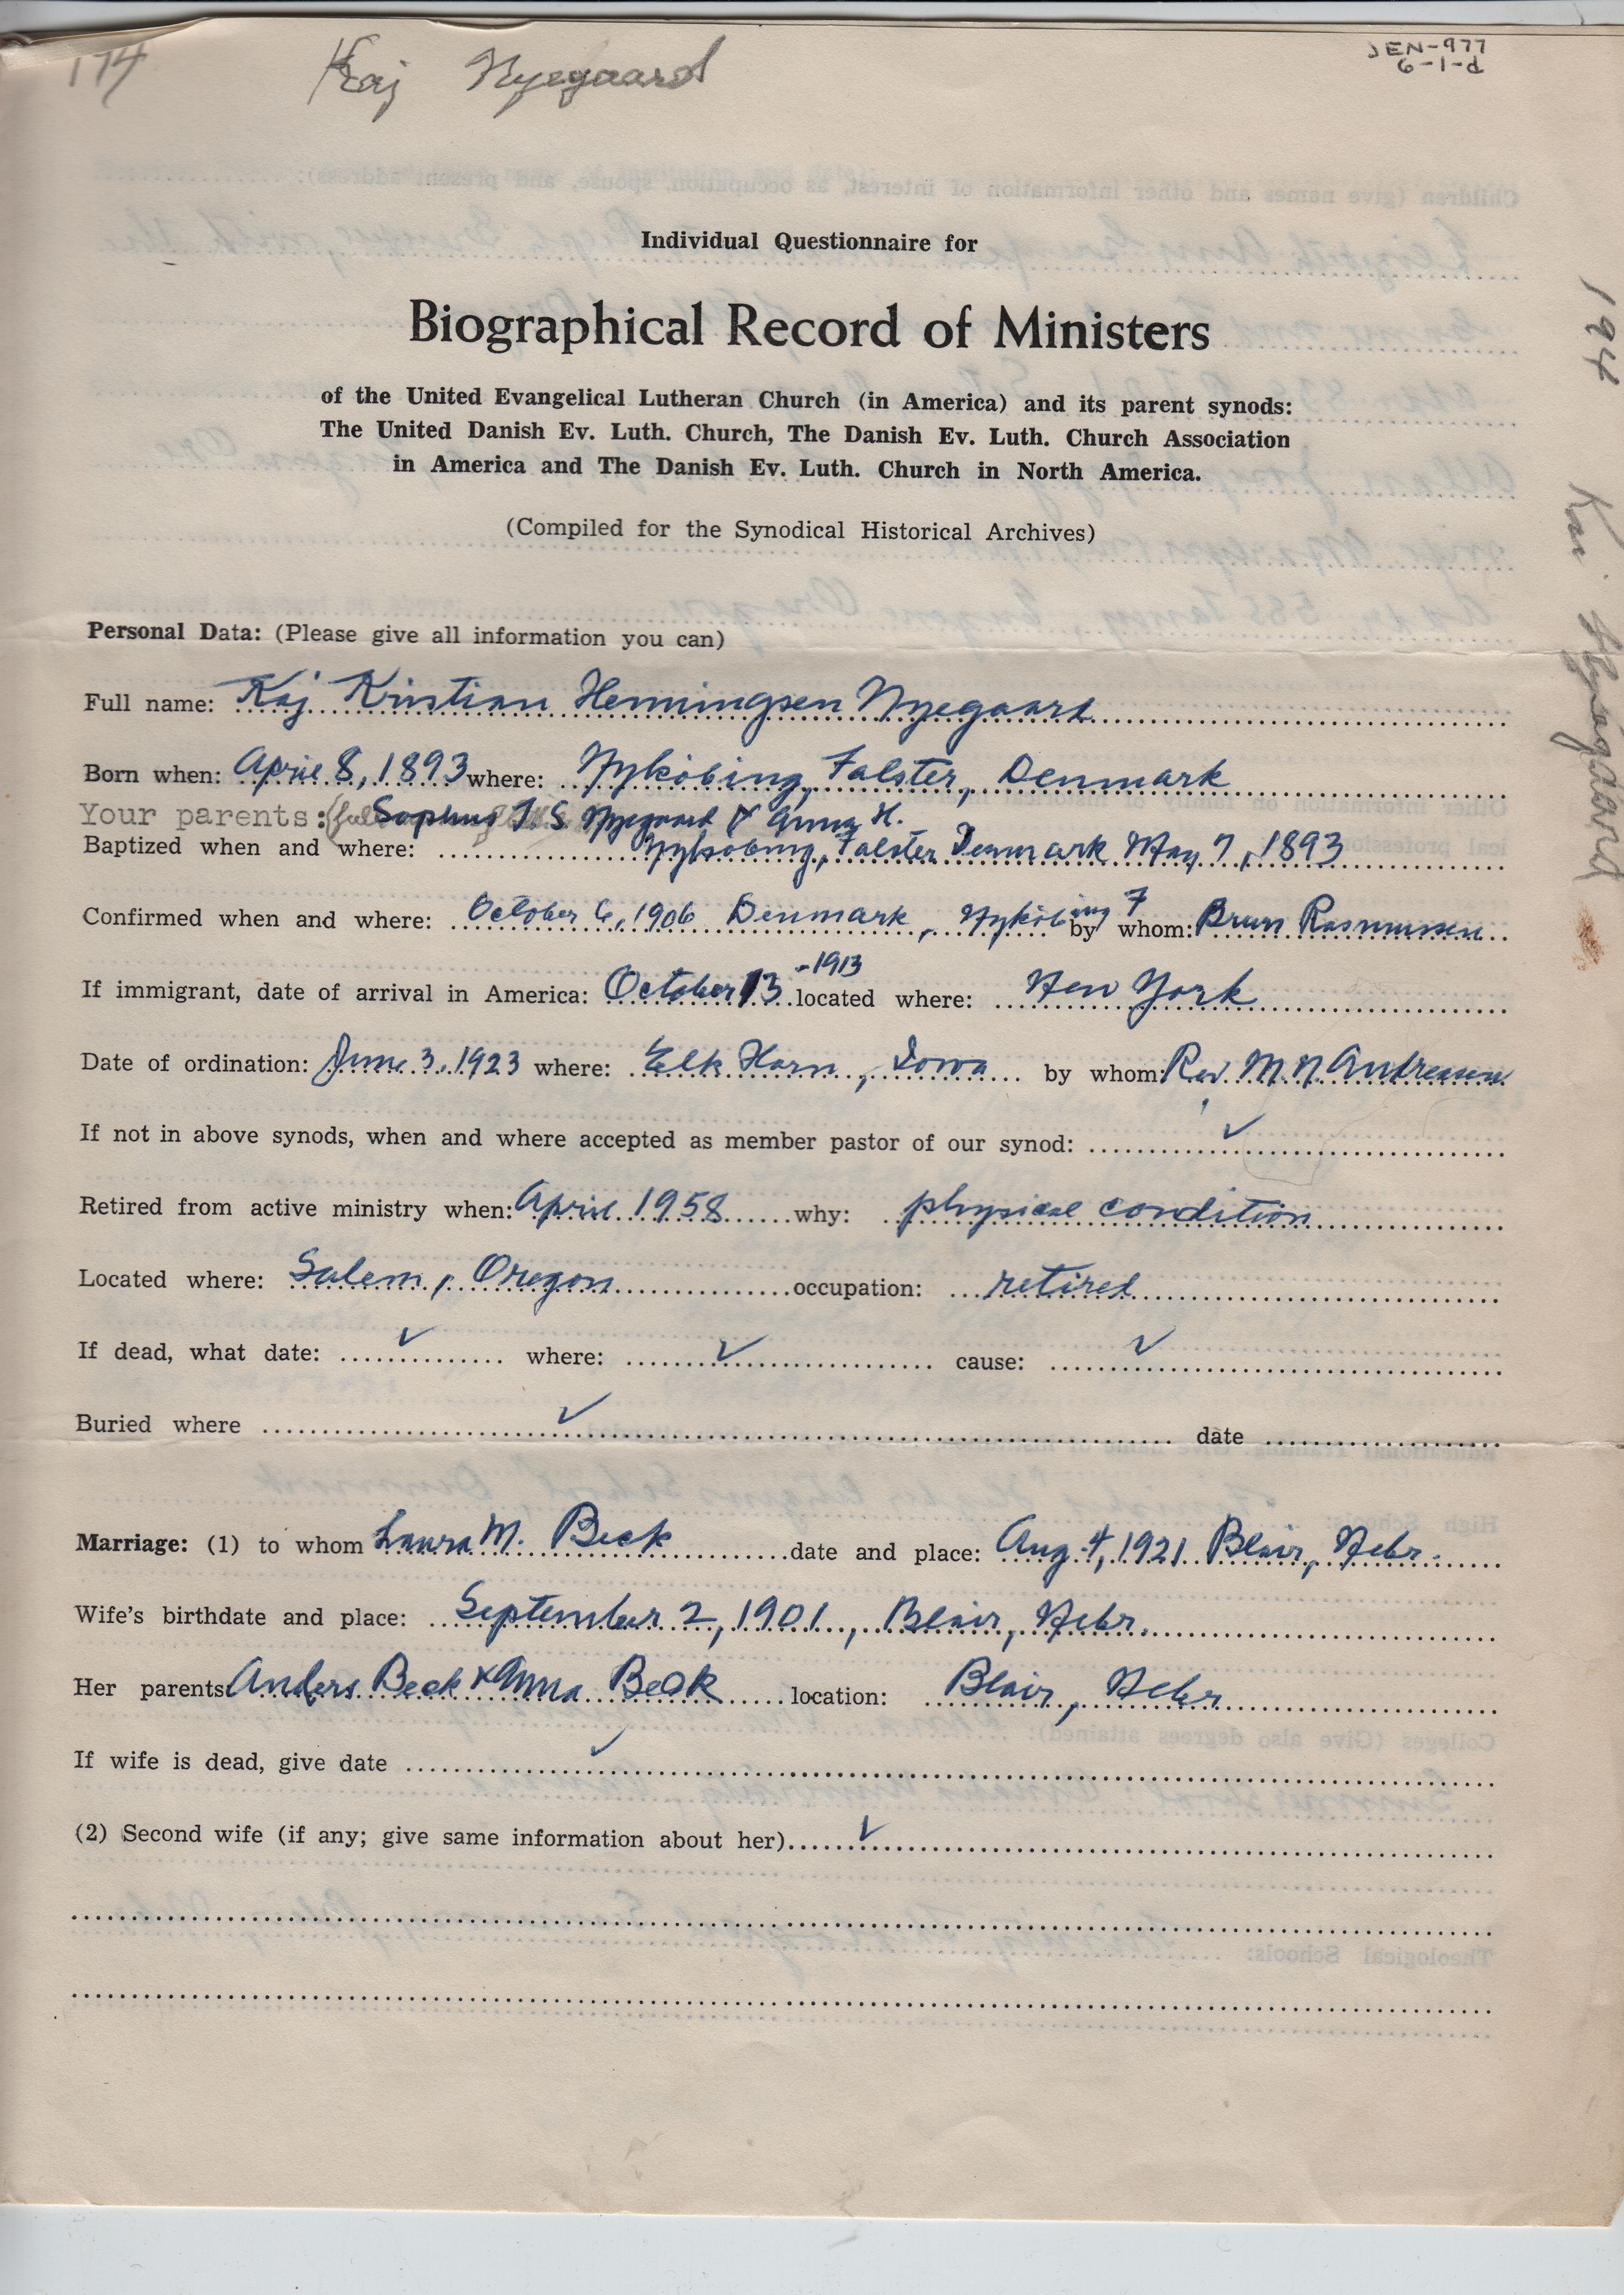 174 Kaj Nyegaard JEN-977
6-1-d
Individual Questionnaire for
Biographical Record of Ministers
of the United Evangelical Lutheran Church (in America) and its parent synods:
The United Danish Ev. Luth. Church, The Danish Ev. Luth. Church Association
in America and The Danish Ev. Luth. Church in North America.
(Compiled for the Synodical Historical Archives)
194 Kaj Nyegaard
Personal Data: (Please give all information you can)
Full name: Kaj Kristian Hemmingsen Nyegaard
Born when: April 8, 1893 where: Nyköbing, Falster, Denmark
Your parents: Sophus T. S. Nyegaard & Anna H.
Baptized when and where: Nyksobing, Falster Denmark May 7, 1893
Confirmed when and where: October 6, 1906 Denmark, Nyköbing F by whom: Brun Rasmussen
If immigrant, date of arrival in America: October 13 -1913 located where: New York
Date of ordination: June 3, 1923 where: Elk Horn, Iowa by whom: Rev. M. N. Andreasen
If not in above synods, when and where accepted as member pastor of our synod: ✓
Retired from active ministry when: April 1958 why: physical condition
Located where: Salem, Oregon occupation: retired
If dead, what date: ✓ where: ✓ cause: ✓
Buried where ✓ date
Marriage: (1) to whom Laura M. Beck date and place: Aug. 4, 1921 Blair, Nebr.
Wife's birthdate and place: September 2, 1901, Blair, Nebr.
Her parents: Anders Beck & Anna Beck location: Blair, Nebr
If wife is dead, give date ✓
(2) Second wife (if any; give same information about her) ✓